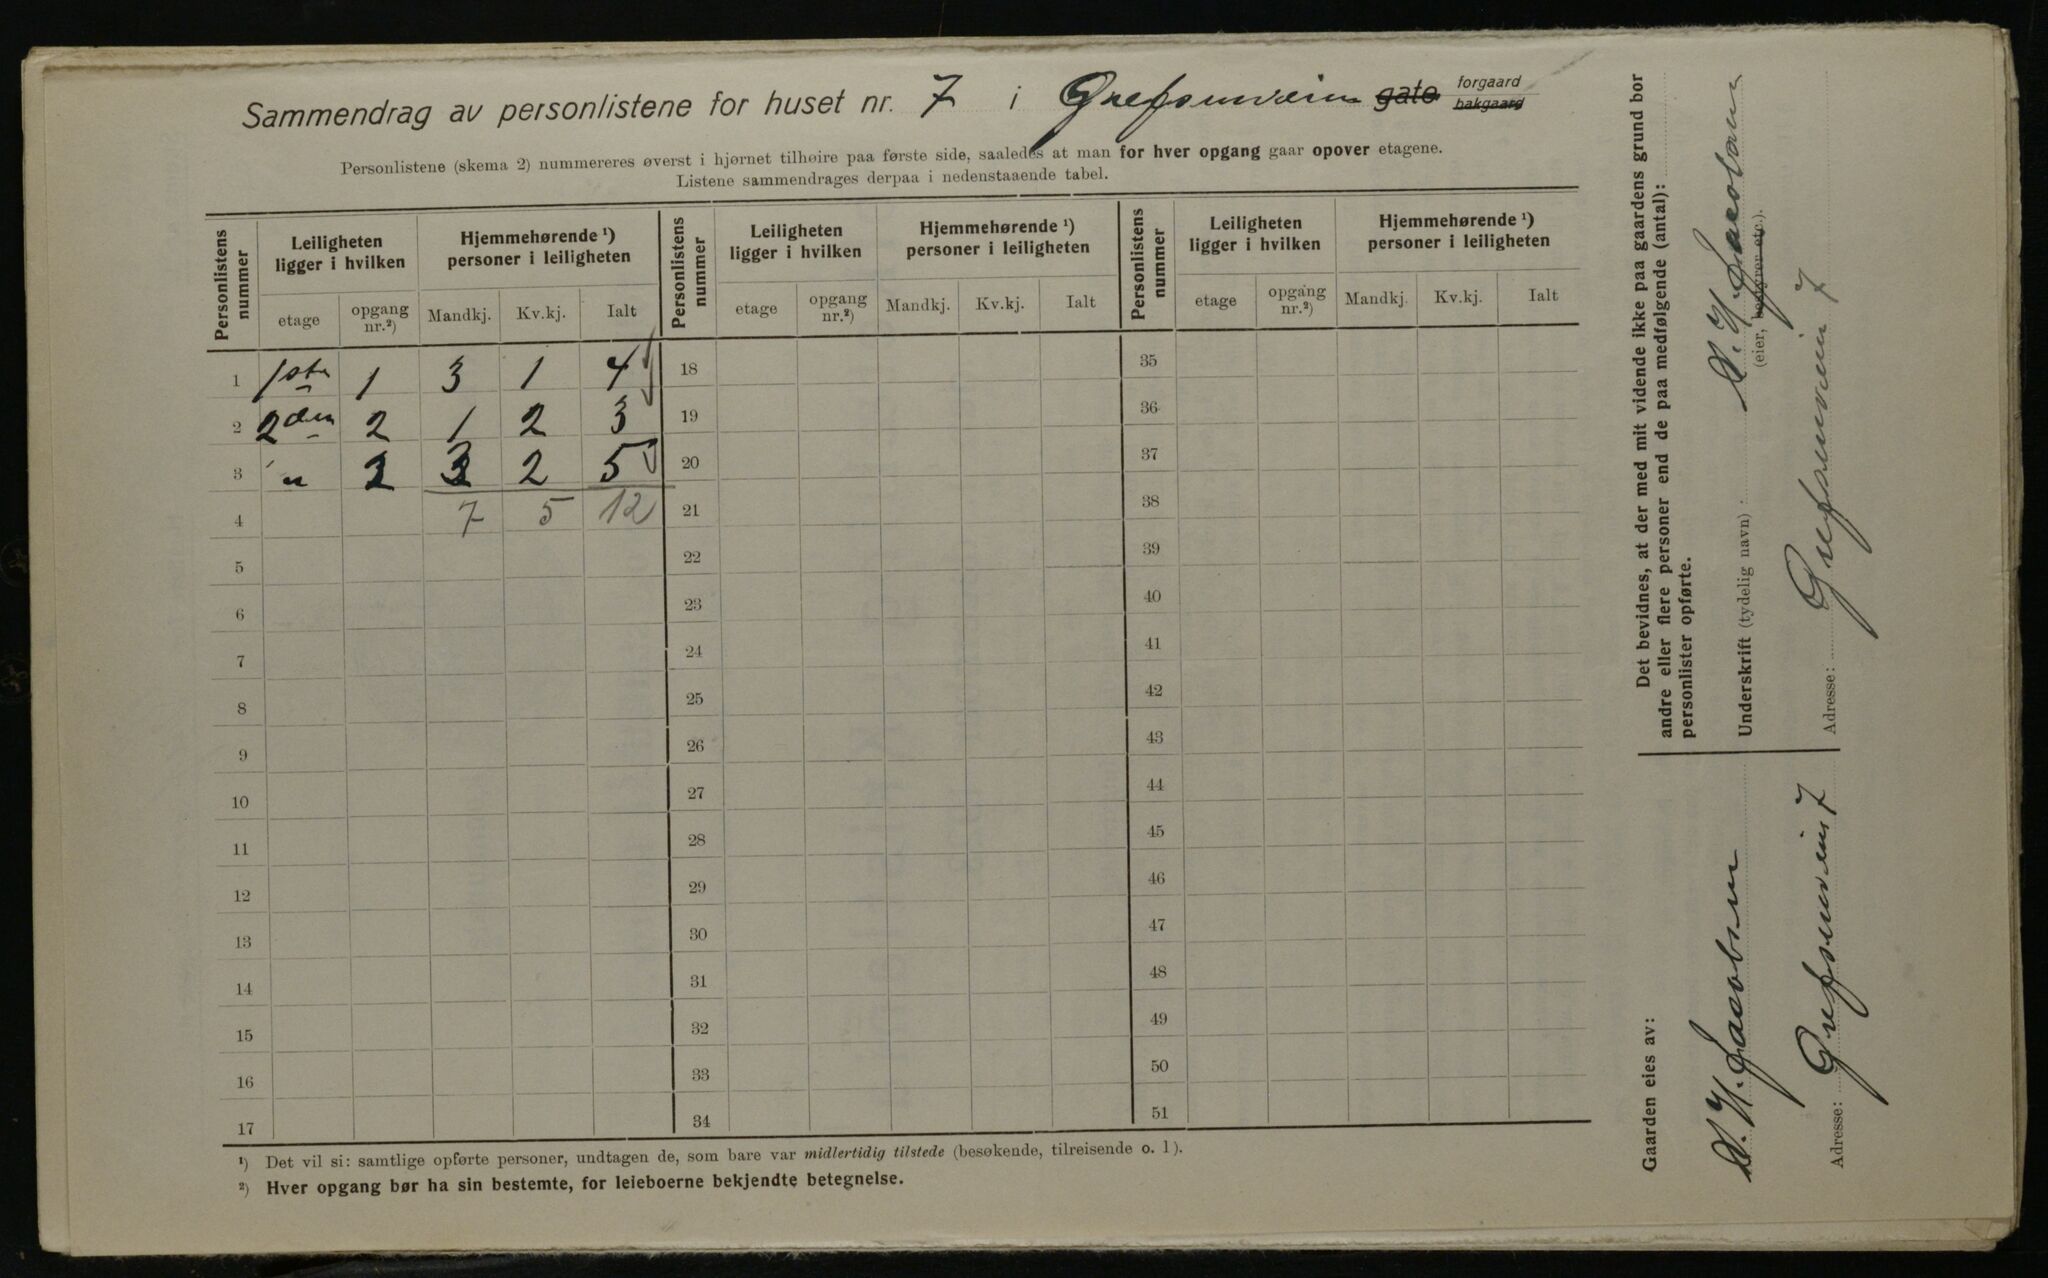 Sammendrag av personlistene for huset nr. 7 i Grefsenveien gate forgaard bakgaard
Personlistene (skema 2) nummereres øverst i hjørnet tilhøire paa første side, saaledes at man for hver opgang gaar opover etagene.
Listene sammendrages derpaa i nedenstaaende tabel.
Personlistens nummer
Leiligheten ligger i hvilken
Hjemmehørende ¹) personer i leiligheten
Personlistens nummer
Leiligheten ligger i hvilken
Hjemmehørende ¹) personer i leiligheten
Personlistens nummer
Leiligheten ligger i hvilken
Hjemmehørende ¹) personer i leiligheten
etage opgang nr.²) Mandkj. Kv.kj. Ialt etage opgang nr.²) Mandkj. Kv.kj. Ialt etage opgang nr.²) Mandkj. Kv.kj. Ialt
1 1ste 1 3 1 4 18 35
2 2den 2 1 2 3 19 36
3 " 2 3 2 5 20 37
4 7 5 12 21 38
5 22 39
6 23 40
7 24 41
8 25 42
9 26 43
10 27 44
11 28 45
12 29 46
13 30 47
14 31 48
15 32 49
16 33 50
17 34 51
¹) Det vil si: samtlige opførte personer, undtagen de, som bare var midlertidig tilstede (besøkende, tilreisende o. l).
²) Hver opgang bør ha sin bestemte, for leieboerne bekjendte betegnelse.
Det bevidnes, at der med mit vidende ikke paa gaardens grund bor
andre eller flere personer end de paa medfølgende (antal):
personlister opførte.
Underskrift (tydelig navn): H. Jacobsen
(eier, bestyrer etc.).
Adresse: Grefsenveien 7
Gaarden eies av:
H. Jacobsen
Adresse: Grefsenveien 7